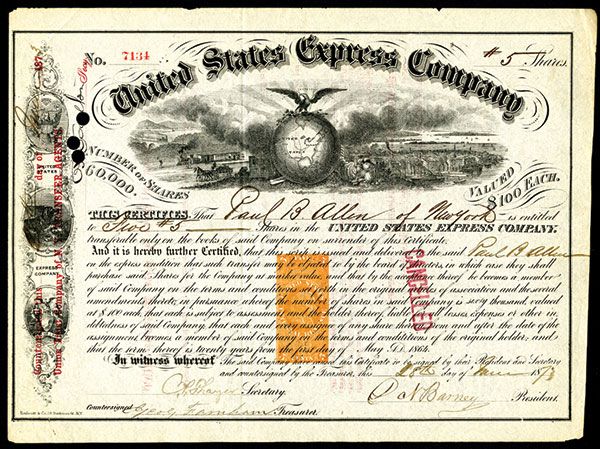 No. 7134
# 5 Shares.
United States Express Company
NUMBER OF SHARES
60,000.
VALUED
$100 EACH.
THIS CERTIFIES, That Paul B Allen of New York is entitled
to Five #5 Shares in the UNITED STATES EXPRESS COMPANY,
transferable only on the books of said Company on surrender of this Certificate.
And it is hereby further Certified, that this was issued and delivered to the said Paul B Allen
on the express condition that said transfer may be objected to by the board of directors, in which case they shall
purchase said Shares for the Company at market value, and that by the acceptance thereof he becomes a member
of said Company on the terms and conditions set forth in the original articles of association and the several
amendments thereto, in pursuance whereof the number of shares in said Company is sixty thousand, valued
at $100 each, that each is subject to assessment, and the holder thereof liable for all losses, expenses or other in-
debtedness of said Company, that each and every assignee of any share thereof, upon and after the date of the
assignment, becomes a member of said Company on the terms and conditions of the original holder, and
that the term thereof is twenty years from the first day of May A.D. 1864.
In witness whereof the said Company has caused this Certificate to be signed by their President and Secretary
and countersigned by the Treasurer, this 28th day of June 1873
Secretary.
D N Barney President.
Countersigned Geo G Farnham Treasurer.
CANCELLED
UNITED
STATES
EXPRESS
COMPANY
day of
187
TRANSFER AGENTS